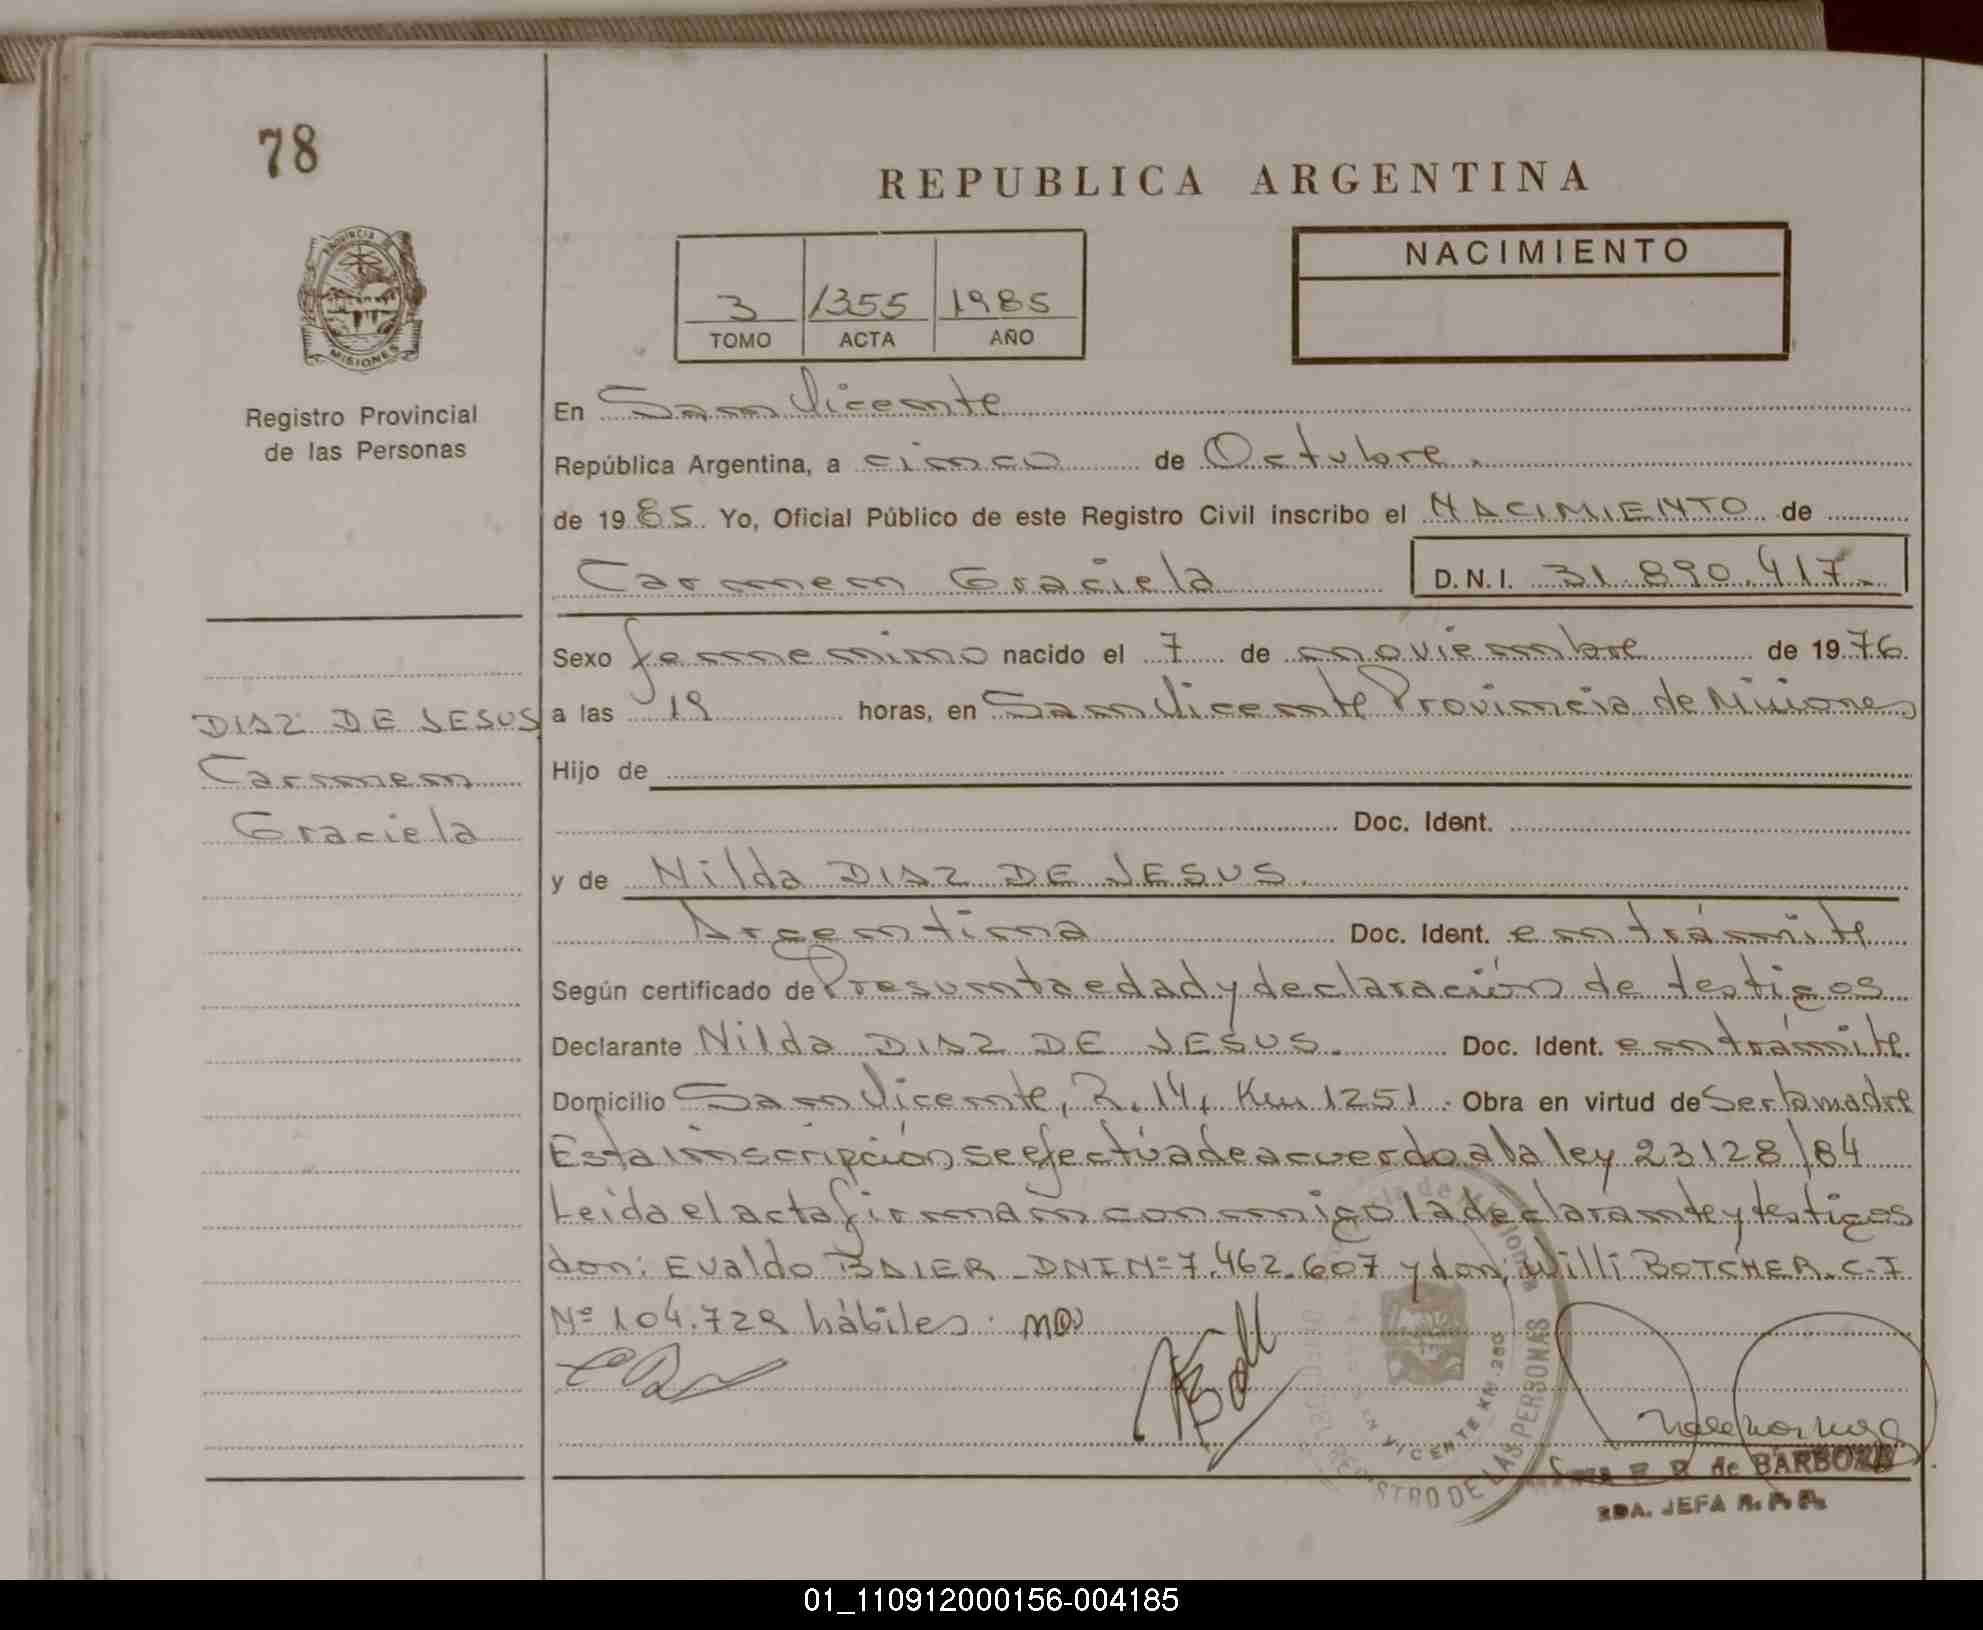 78
REPUBLICA ARGENTINA
PROVINCIA DE
MISIONES
Registro Provincial
de las Personas
3 1355 1985
TOMO ACTA AÑO
NACIMIENTO
En San Vicente
República Argentina, a cinco de Octubre.
de 1985. Yo, Oficial Público de este Registro Civil inscribo el NACIMIENTO de
Carmen Graciela D.N.I. 31.890.417.
Sexo femenino nacido el 7 de noviembre de 1976
DIAZ DE JESUS
Carmen
Graciela
a las 19 horas, en San Vicente Provincia de Misiones
Hijo de
Doc. Ident.
y de Nilda DIAZ DE JESUS.
Argentina Doc. Ident. en trámite
Según certificado de Presunta edad y declaración de testigos
Declarante Nilda DIAZ DE JESUS. Doc. Ident. en trámite.
Domicilio San Vicente, R. 14, Km 1251. Obra en virtud de Ser la madre
Esta inscripción se efectúa de acuerdo a la ley 23128/84
Leida el acta firman conmigo la declarante y testigos
don: Evaldo BAIER - DNI Nº 7.462.607 y don: Willi BOTCHER. C.I.
Nº 104.729 hábiles.
SAN VICENTE KM. 280
REGISTRO DE LAS PERSONAS
de BARBOZA
JEFA R. P. P.
01_110912000156-004185